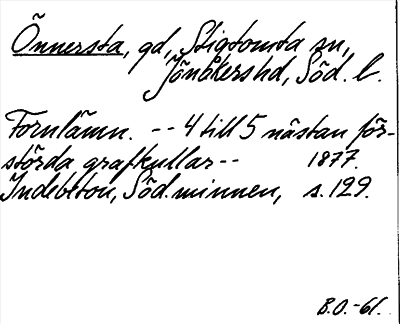 Önnersta, gd, Stigtomta sn,
Jönåkers hd, Söd. l.
Fornlämn. -- 4 till 5 nästan för-
störda grafkullar -- 1877.
Indebetou, Söd. minnen, s. 129.
B.O.-61.